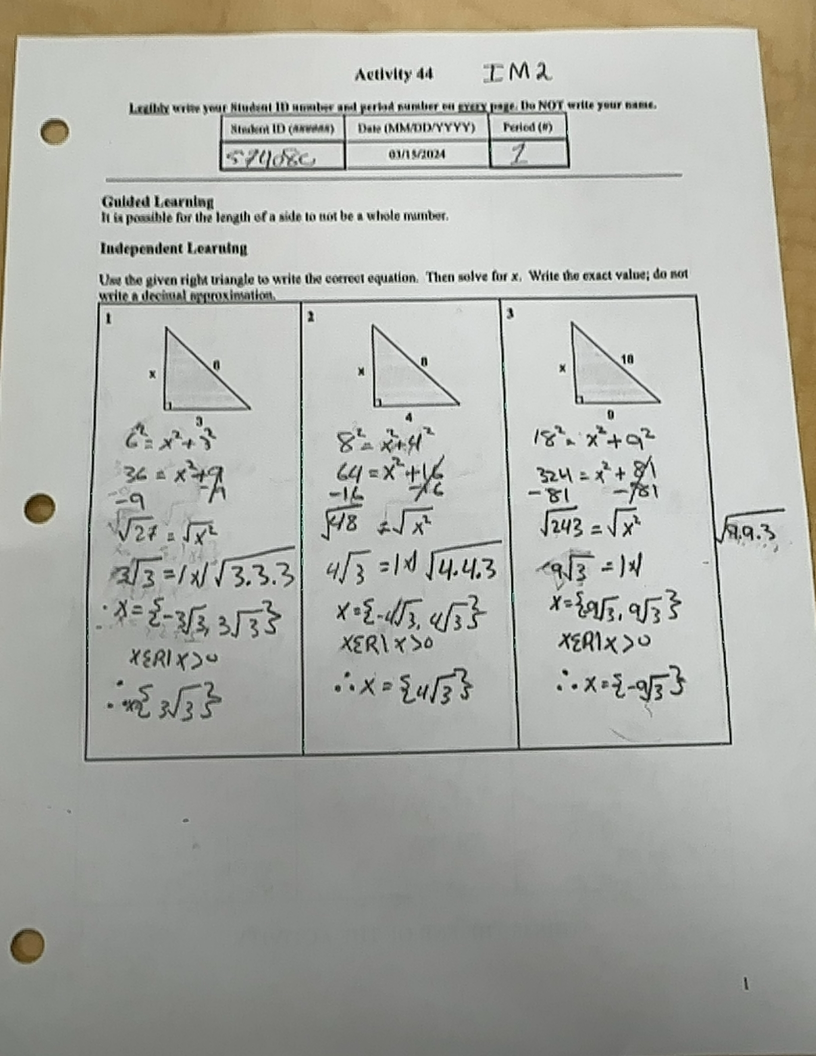 Activity 44 IM2
Legibly write your Student ID number and period number on every page. Do NOT write your name.
Student ID (######) Date (MM/DD/YYYY) Period (#)
03/15/2024 1
Guided Learning
It is possible for the length of a side to not be a whole number.
Independent Learning
Use the given right triangle to write the correct equation. Then solve for x. Write the exact value; do not
write a decimal approximation.
1
x 6
3
6² = x² + 3²
36 = x² + 9
-9 -9
√27 = √x²
3√3 = |x| √3.3.3
x = {-3√3, 3√3}
xεR|x>0
∴ x{3√3}
2
x 8
4
8² = x² + 4²
64 = x² + 16
-16 -16
√48 = √x²
4√3 = |x| √4.4.3
x = {-4√3, 4√3}
xεR|x>0
∴ x = {4√3}
3
x 18
9
18² = x² + 9²
324 = x² + 81
-81 -81
√243 = √x²
√9.9.3
9√3 = |x|
x = {9√3, 9√3}
xεR|x>0
∴ x = {-9√3}
1